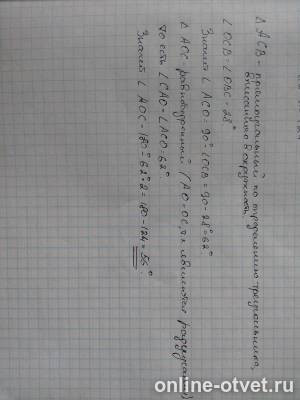 Δ ACB - прямоугольный по определению треугольника,
вписанного в окружность
∠OCB = ∠OBC = 28°
Значит ∠ACO = 90° - ∠OCB = 90 - 28° = 62°
Δ AOC - равнобедренный (AO = OC, т.к. являются радиусами)
то есть ∠CAO = ∠ACO = 62°
Значит ∠AOC = 180° - 62° · 2 = 180 - 124 = 56°
online-otvet.ru